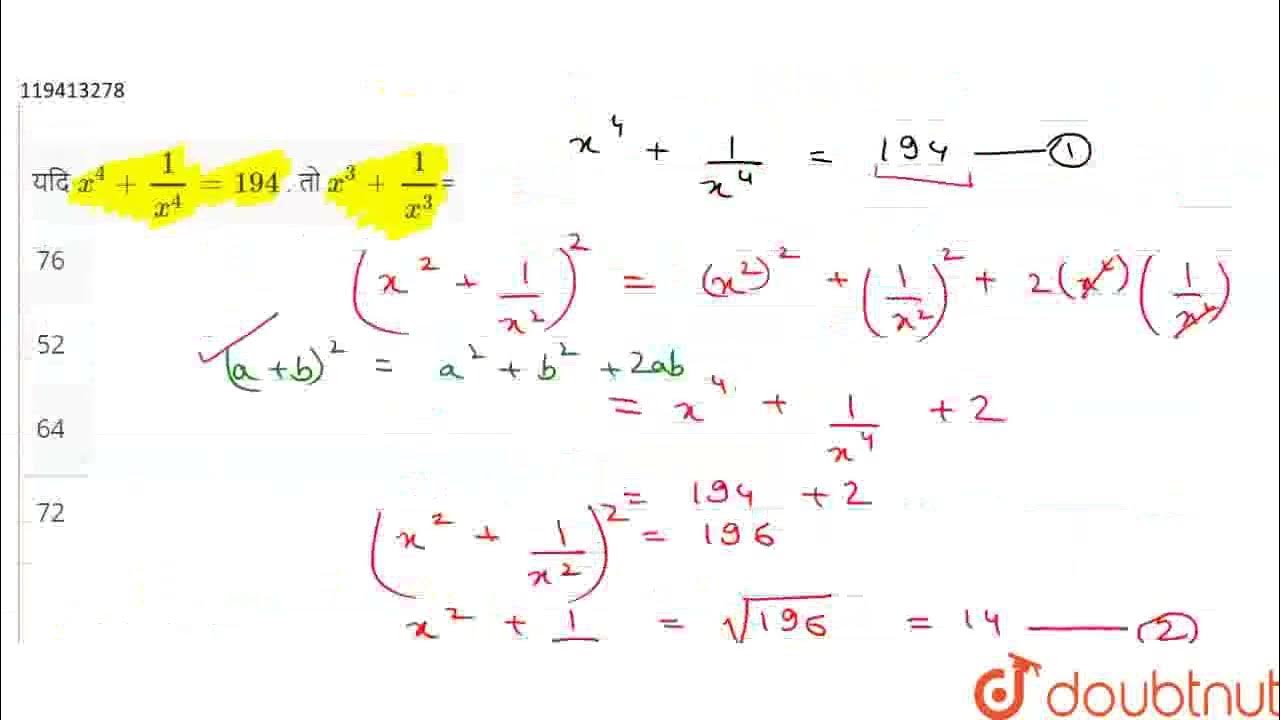 119413278
यदि x⁴ + 1/x⁴ = 194 . तो x³ + 1/x³ =
x⁴ + 1/x⁴ = 194 — ①
76
(x² + 1/x²)² = (x²)² + (1/x²)² + 2(x²)(1/x²)
52
(a+b)² = a² + b² + 2ab
= x⁴ + 1/x⁴ + 2
64
= 194 + 2
72
(x² + 1/x²)² = 196
x² + 1 = √196 = 14 — ②
doubtnut